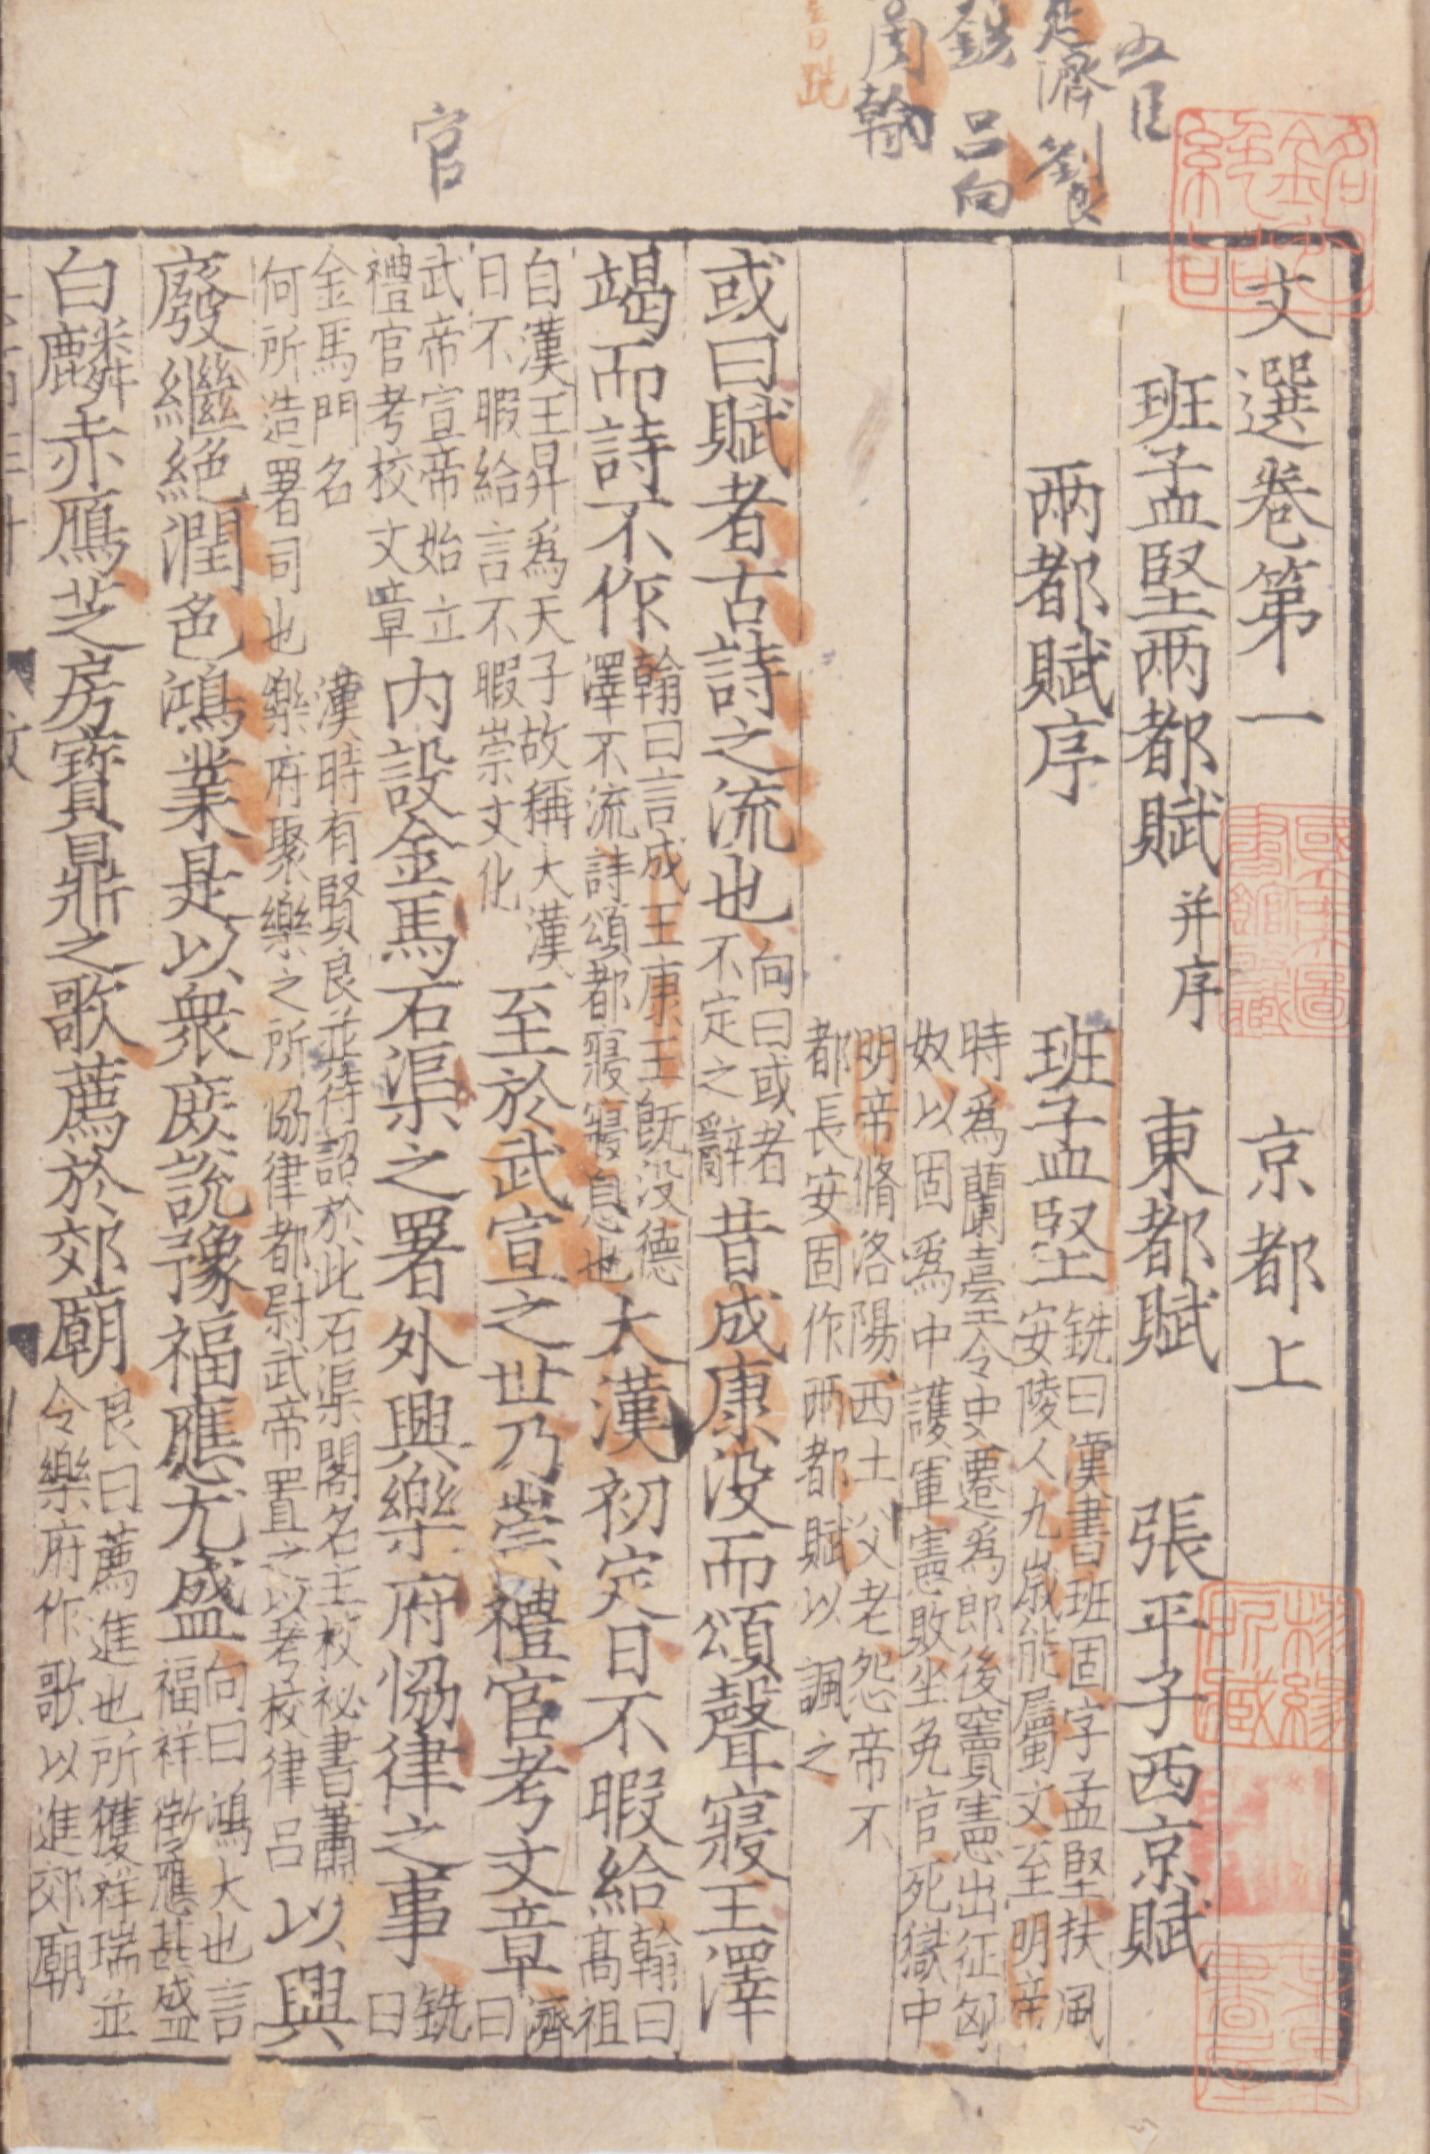 五臣
濟劉良
銑 呂向
周翰
官
文選卷第一 京都上
班孟堅兩都賦并序 東都賦 張平子西京賦
兩都賦序
班孟堅銑曰漢書班固字孟堅扶風
安陵人九歲能屬文至明帝
時爲蘭臺令史遷爲郎後竇憲出征匈
奴以固爲中護軍憲敗坐免官死獄中
明帝脩洛陽西土父老怨帝不
都長安固作兩都賦以諷之
或曰賦者古詩之流也向曰或者
不定之辭昔成康没而頌聲寢王澤
竭而詩不作翰曰言成王康王既没德
澤不流詩頌都寢寢息也大漢初定日不暇給翰曰
高祖
自漢王昇爲天子故稱大漢
日不暇給言不暇崇文化至於武宣之世乃崇禮官考文章濟
曰
武帝宣帝始立
禮官考校文章内設金馬石渠之署外興樂府恊律之事銑
曰
金馬門名
何所造署司也漢時有賢良並待詔於此石渠閣名主校祕書蕭以
樂府聚樂之所恊律都尉武帝置之以考校律吕以興
廢繼絶潤色鴻業是以衆庶說豫福應尤盛向曰鴻大也言
福祥徵應甚盛
白麟赤鴈芝房寶鼎之歌薦於郊廟良曰薦進也所獲祥瑞並
令樂府作歌以進郊廟